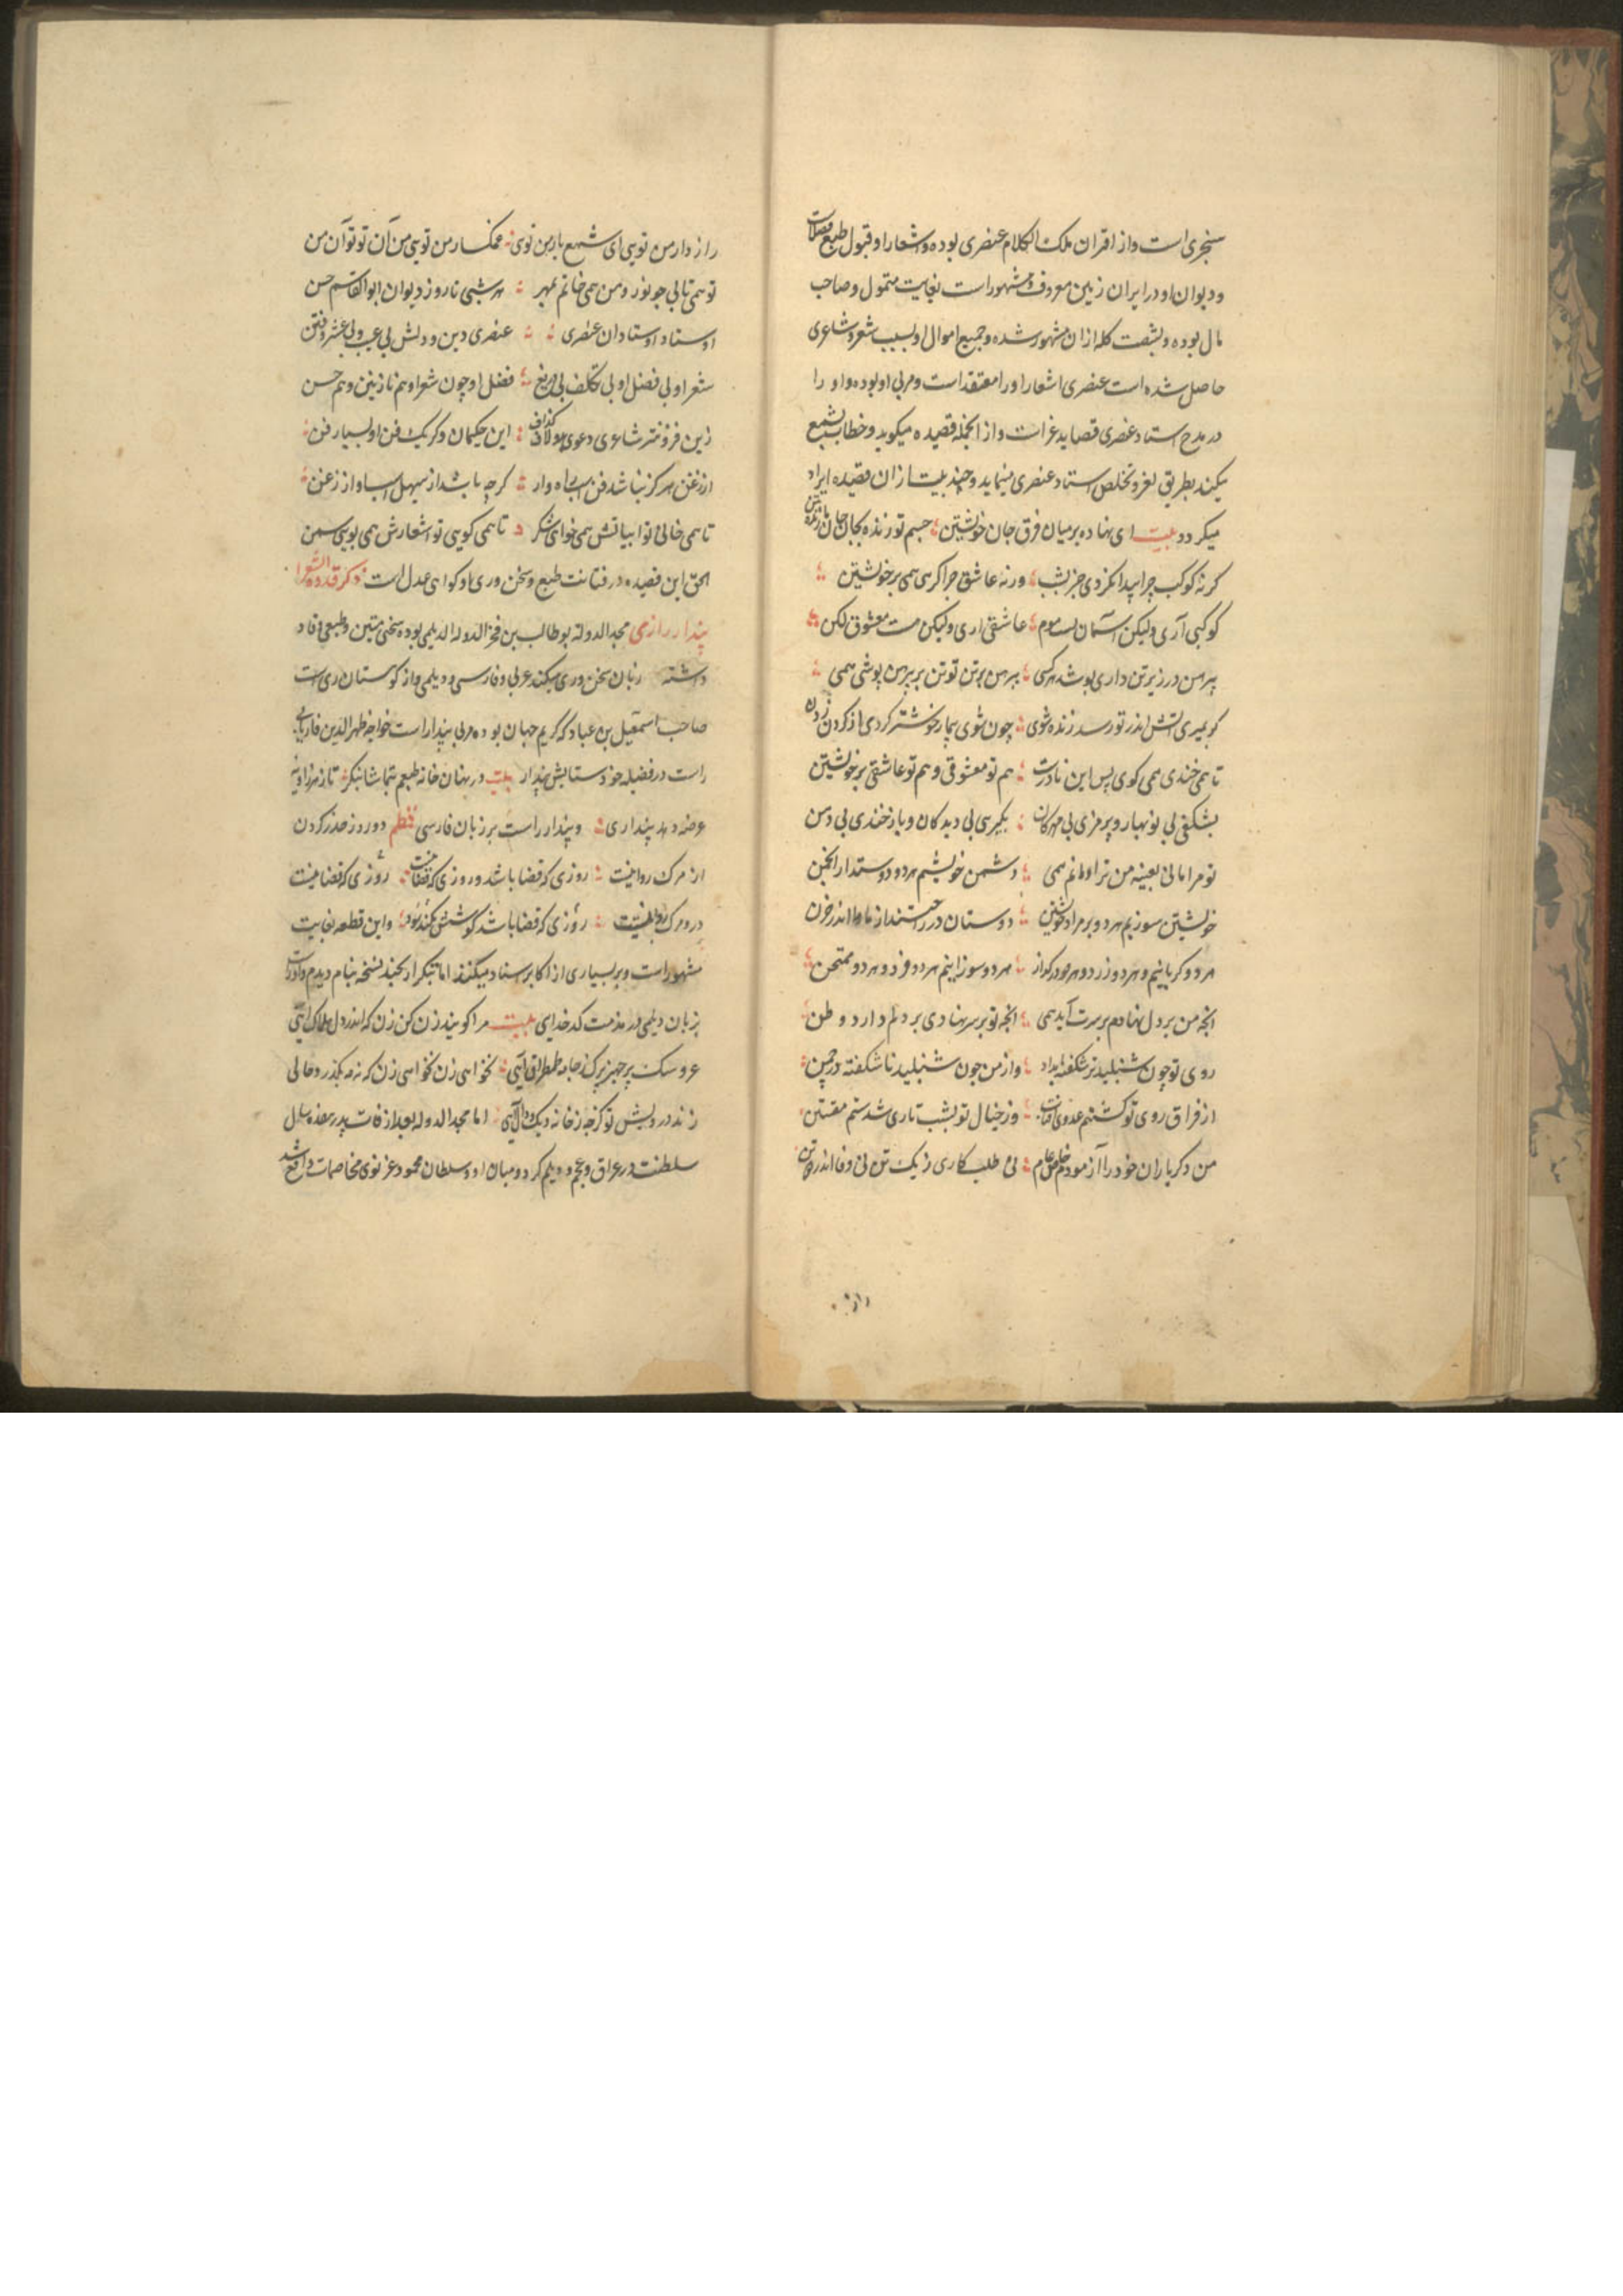 سنجری است و از اقران ملک الکلام عنصری بوده و اشعار او قبول طبع فضلاست
و دیوان او در ایران زمین معروف و مشهور است بغایت متمول و صاحب
مال بوده و بشصت کله ازان مشهور شده و جمیع اموال او بسبب شعر و شاعری
حاصل شده است عنصری اشعار او را معتقد است و مربی او بوده و او را
در مدح استاد عنصری قصاید غراست و از انجمله قصیده میکوید و خطاب بشمع
میکند بطریق لغز و تخلص استاد عنصری مینماید و چند بیت ازان قصیده ایراد
میکردد بیت ای نهاده بر میان فرق جان خویشتن جسم تو زنده بجان و جان تو زنده بتن
کر نه کوکب چرا پیدا نکردی جز بشب ورنه عاشق چرا کریی همی بر خویشتن
کوکبی آری ولیکن آسمان تست موم عاشقی اری ولیکن هست معشوق لکن
پیرهن در زیر تن داری بوشد هر کسی پیرهن بر تن تو تن بر پیرهن پوشی همی
کر بمیری آتش اندر تو رسد زنده شوی چون شوی بیمار خوشتر کردی از کردن زدن
تا همی خندی همی کریی پس این نادرست هم تو معشوقی و هم تو عاشقی بر خویشتن
بشکفی بی نوبهار و پژمری بی مهرکان بکریی بی دیدکان و باز خندی بی دهن
تو مرا مانی بعینه من ترا مانم همی دشمن خویشیم هر دو دوستدار انجمن
خویشتن سوزیم هر دو بر مراد خویشتن دوستان در راحتند از ما و ما اندر حزن
هر دو کریانیم و هر دو زرد و هر دو در کداز هر دو سوزانیم هر دو فرد و هر دو ممتحن
انچه من بر دل نهادم بر سرت آید همی انچه تو بر سر نهادی بر دلم دارد وطن
روی تو چون شنبلید تر شکفته بامداد و از من چون شنبلید نا شکفته در چمن
از فراق روی تو کشتم عدوی آفتاب وز خیال تو بشب تاری شدستم مفتتن
من دکر یاران خود را آزمودم خاص و عام نی طلب کاری ز یک تن نی وفا اندر دو تن
راز دار من تویی ای شمع یار من تویی غمکسار من تویی من آن تو تو آن من
تو همی تابی چو نور و من همی خوانم بمهر هر شبی تا روز دیوان ابو القاسم حسن
اوستاد اوستادان عنصری عنصری دین و دلش بی عیب و بی غش و فتن
شعر او بی فضل او بی تکلف بی دریغ فضل او چون شعر او هم نازنین و هم حسن
زین فزونتر شاعری دعوی بود لاف کزاف این حکیمان دکر یک فن او بسیار فن
از زغن هرکز نباشد فن اسب راهوار کرچه باشد از صهیل اسب آواز زغن
تا همی خوانی تو ابیاتش همی خوای شکر تا همی کویی تو اشعارش همی بویی سمن
الحق این قصیده در متانت طبع و سخن وری او کواهی عدل است ذکر قدوة الشعرا
پندار رازی مجد الدوله بو طالب بن فخر الدوله الدیلمی بوده سخنی متین و طبعی وقاد
داشته زبان سخن وری میکند عربی و فارسی و دیلمی و از کوهستان ری است
صاحب اسمعیل بن عباد که کریم جهان بوده مربی پندار است خواجه ظهیر الدین فاریابی
راست در فضیله خود ستایش پندار بیت در نهان خانه طبعم بتماشا بنکر تا ز هر زاویه
عرضه دهد پنداری و پندار راست بر زبان فارسی قطعه دو روز حذر کردن
از مرک روا نیست روزی که قضا باشد و روزی که قضا نیست روزی که قضا نیست
درو مرک روا نیست روزی که قضا باشد کوشش نکند سود و این قطعه بغایت
مشهور است و بر بسیاری از اکابر اسناد میکنند اما بتکرار بچند نسخه بنام دیدم و اوراست
بزبان دیلمی در مذمت کدخدایی بیت مرا کویند زن کن زن که اندر دل هلاک آیی
عروسک پر جهیز بزرک جامه طمطراق آیی نخواهی زن نخواهی زن که نه مه بکذرد خالی
زند در ریش تو کزچه ز خانه دیک وال آیی اما مجد الدوله بعد از وفات پدر هفده سال
سلطنت در عراق و عجم و دیلم کرد و میان او و سلطان محمود غزنوی مخاصمات واقع شد